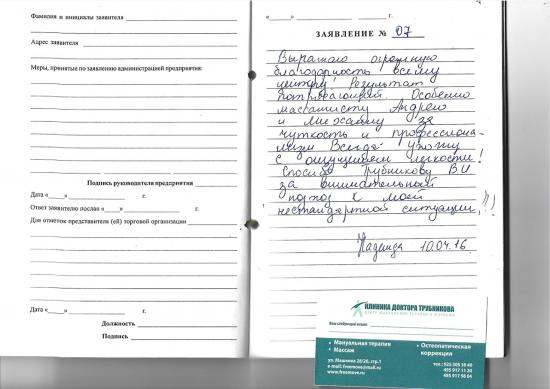 Фамилия и инициалы заявителя
Адрес заявителя
Меры, принятые по заявлению администрацией предприятия:
Подпись руководителя предприятия
Дата «____» г.
Ответ заявителю послан «____» г.
Для отметок представители (ей) торговой организации
Дата «____» г.
Должность
Подпись
«____» г.
ЗАЯВЛЕНИЕ № 07
Выражаю огромную
благодарность всему
центру! Результат
потрясающий. Особенно
массажисту Андрею
и Михаилу за
чуткость и профессиона-
лизм Всегда ухожу
с ощущением легкости!
Спасибо Трубникову В.И
за внимательный
подход к моей
нестандартной ситуации!!!
Надежда 10.04.16.
КЛИНИКА ДОКТОРА ТРУБНИКОВА
Ваш следующий визит
• Мануальная терапия
• Массаж
• Остеопатическая
коррекция
ул. Машкова 28/20, стр.1
e-mail: freemove@mail.ru
www.freemove.ru
495 917 11 20
495 917 98 64